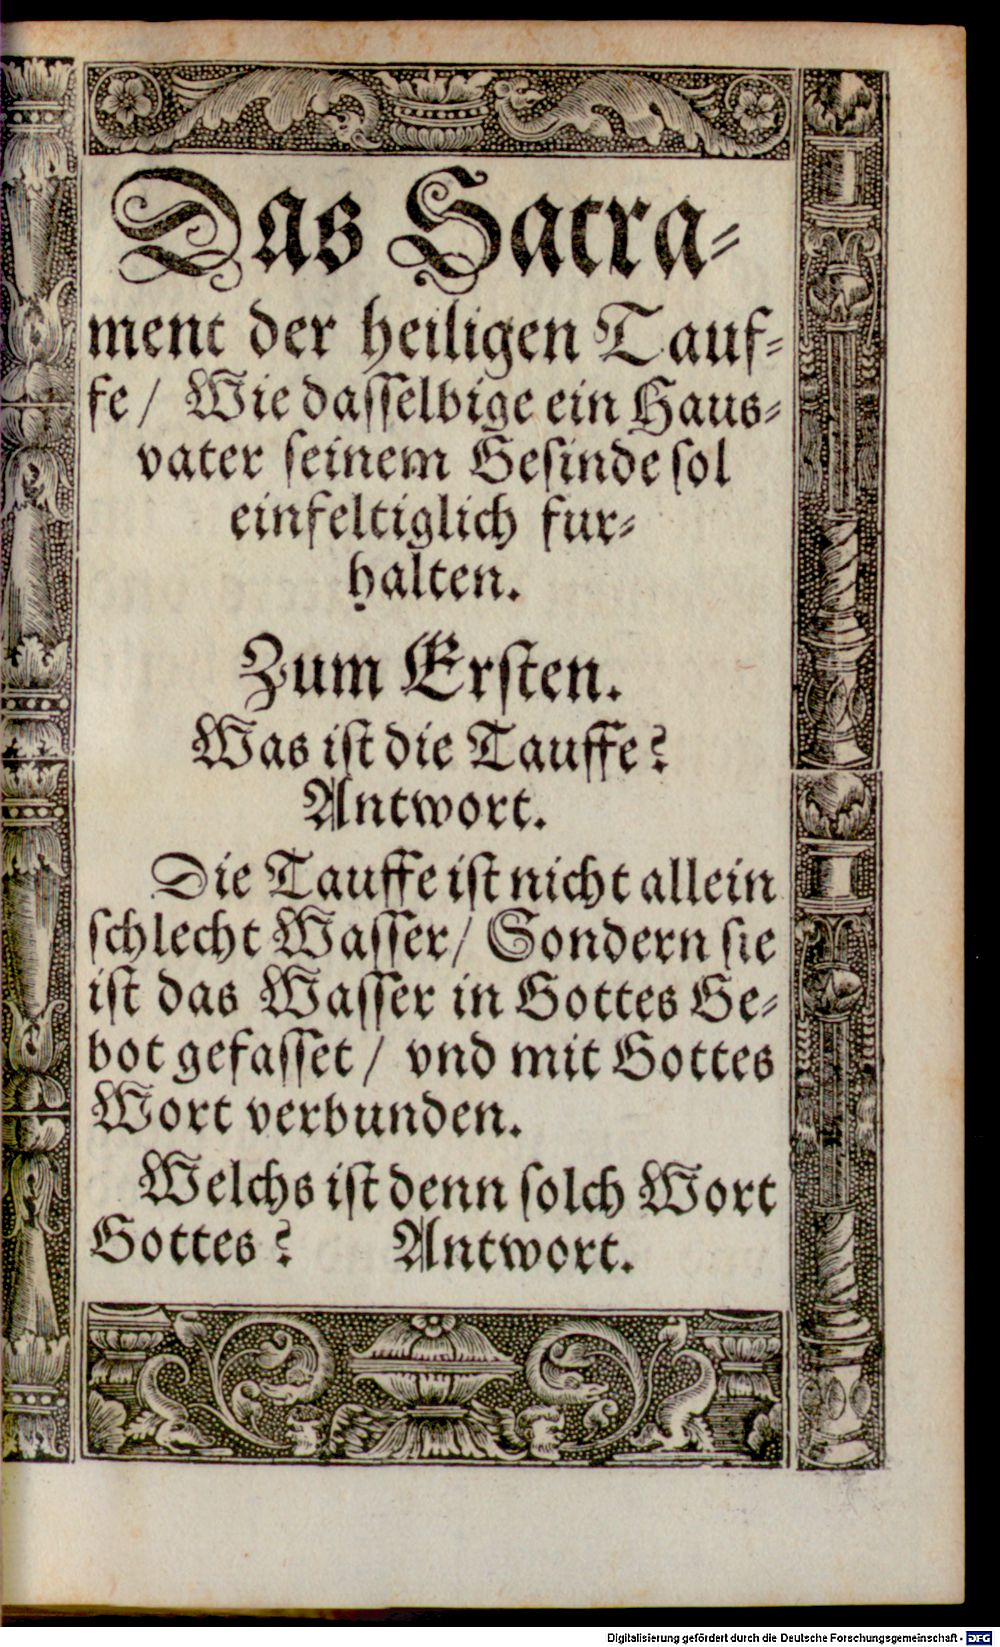 Das Sacra-
ment der heiligen Tauf-
fe / Wie dasselbige ein Haus-
vater seinem Gesinde sol
einfeltiglich fur-
halten.
Zum Ersten.
Was ist die Tauffe?
Antwort.
Die Tauffe ist nicht allein
schlecht Wasser / Sondern sie
ist das Wasser in Gottes Ge-
bot gefasset / vnd mit Gottes
Wort verbunden.
Welchs ist denn solch Wort
Gottes? Antwort.
Digitalisierung gefördert durch die Deutsche Forschungsgemeinschaft - DFG